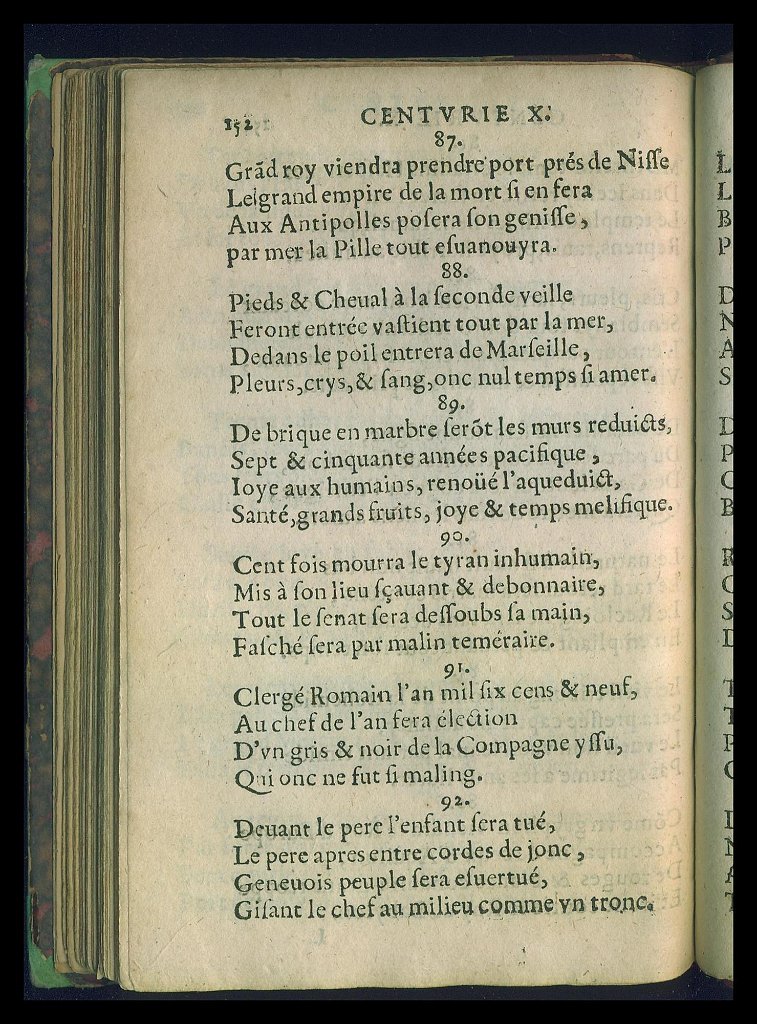 152
CENTVRIE X.
87.
Grãd roy viendra prendre port prés de Nisse
Le grand empire de la mort si en fera
Aux Antipolles posera son genisse,
par mer la Pille tout esuanouyra.
88.
Pieds & Cheual à la seconde veille
Feront entrée vastient tout par la mer,
Dedans le poil entrera de Marseille,
Pleurs, crys, & sang, onc nul temps si amer.
89.
De brique en marbre serõt les murs reduicts,
Sept & cinquante années pacifique,
Ioye aux humains, renoüé l'aqueduict,
Santé, grands fruits, joye & temps melifique.
90.
Cent fois mourra le tyran inhumain,
Mis à son lieu sçauant & debonnaire,
Tout le senat sera dessoubs sa main,
Fasché sera par malin teméraire.
91.
Clergé Romain l'an mil six cens & neuf,
Au chef de l'an fera élection
D'vn gris & noir de la Compagne yssu,
Qui onc ne fut si maling.
92.
Deuant le pere l'enfant sera tué,
Le pere apres entre cordes de jonc,
Geneuois peuple sera esuertué,
Gisant le chef au milieu comme vn tronc.
L
L
B
P
D
N
A
S
D
P
C
B
R
C
S
D
T
T
P
C
D
N
A
T